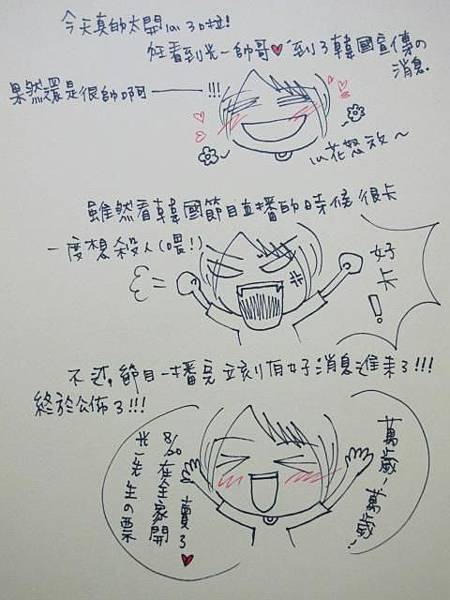 今天真的太開心了啦!
能看到光一帥哥♥到了韓國宣傳の
消息
果然還是很帥啊——!!!
心花怒放~
雖然看韓國節目直播的時候很卡
一度想殺人(喂!)
好卡!
不過,節目一播完立刻有好消息進來了!!!
終於公佈了!!!
萬歲!萬歲!
8/20在全家開賣了♥
光一先生の票